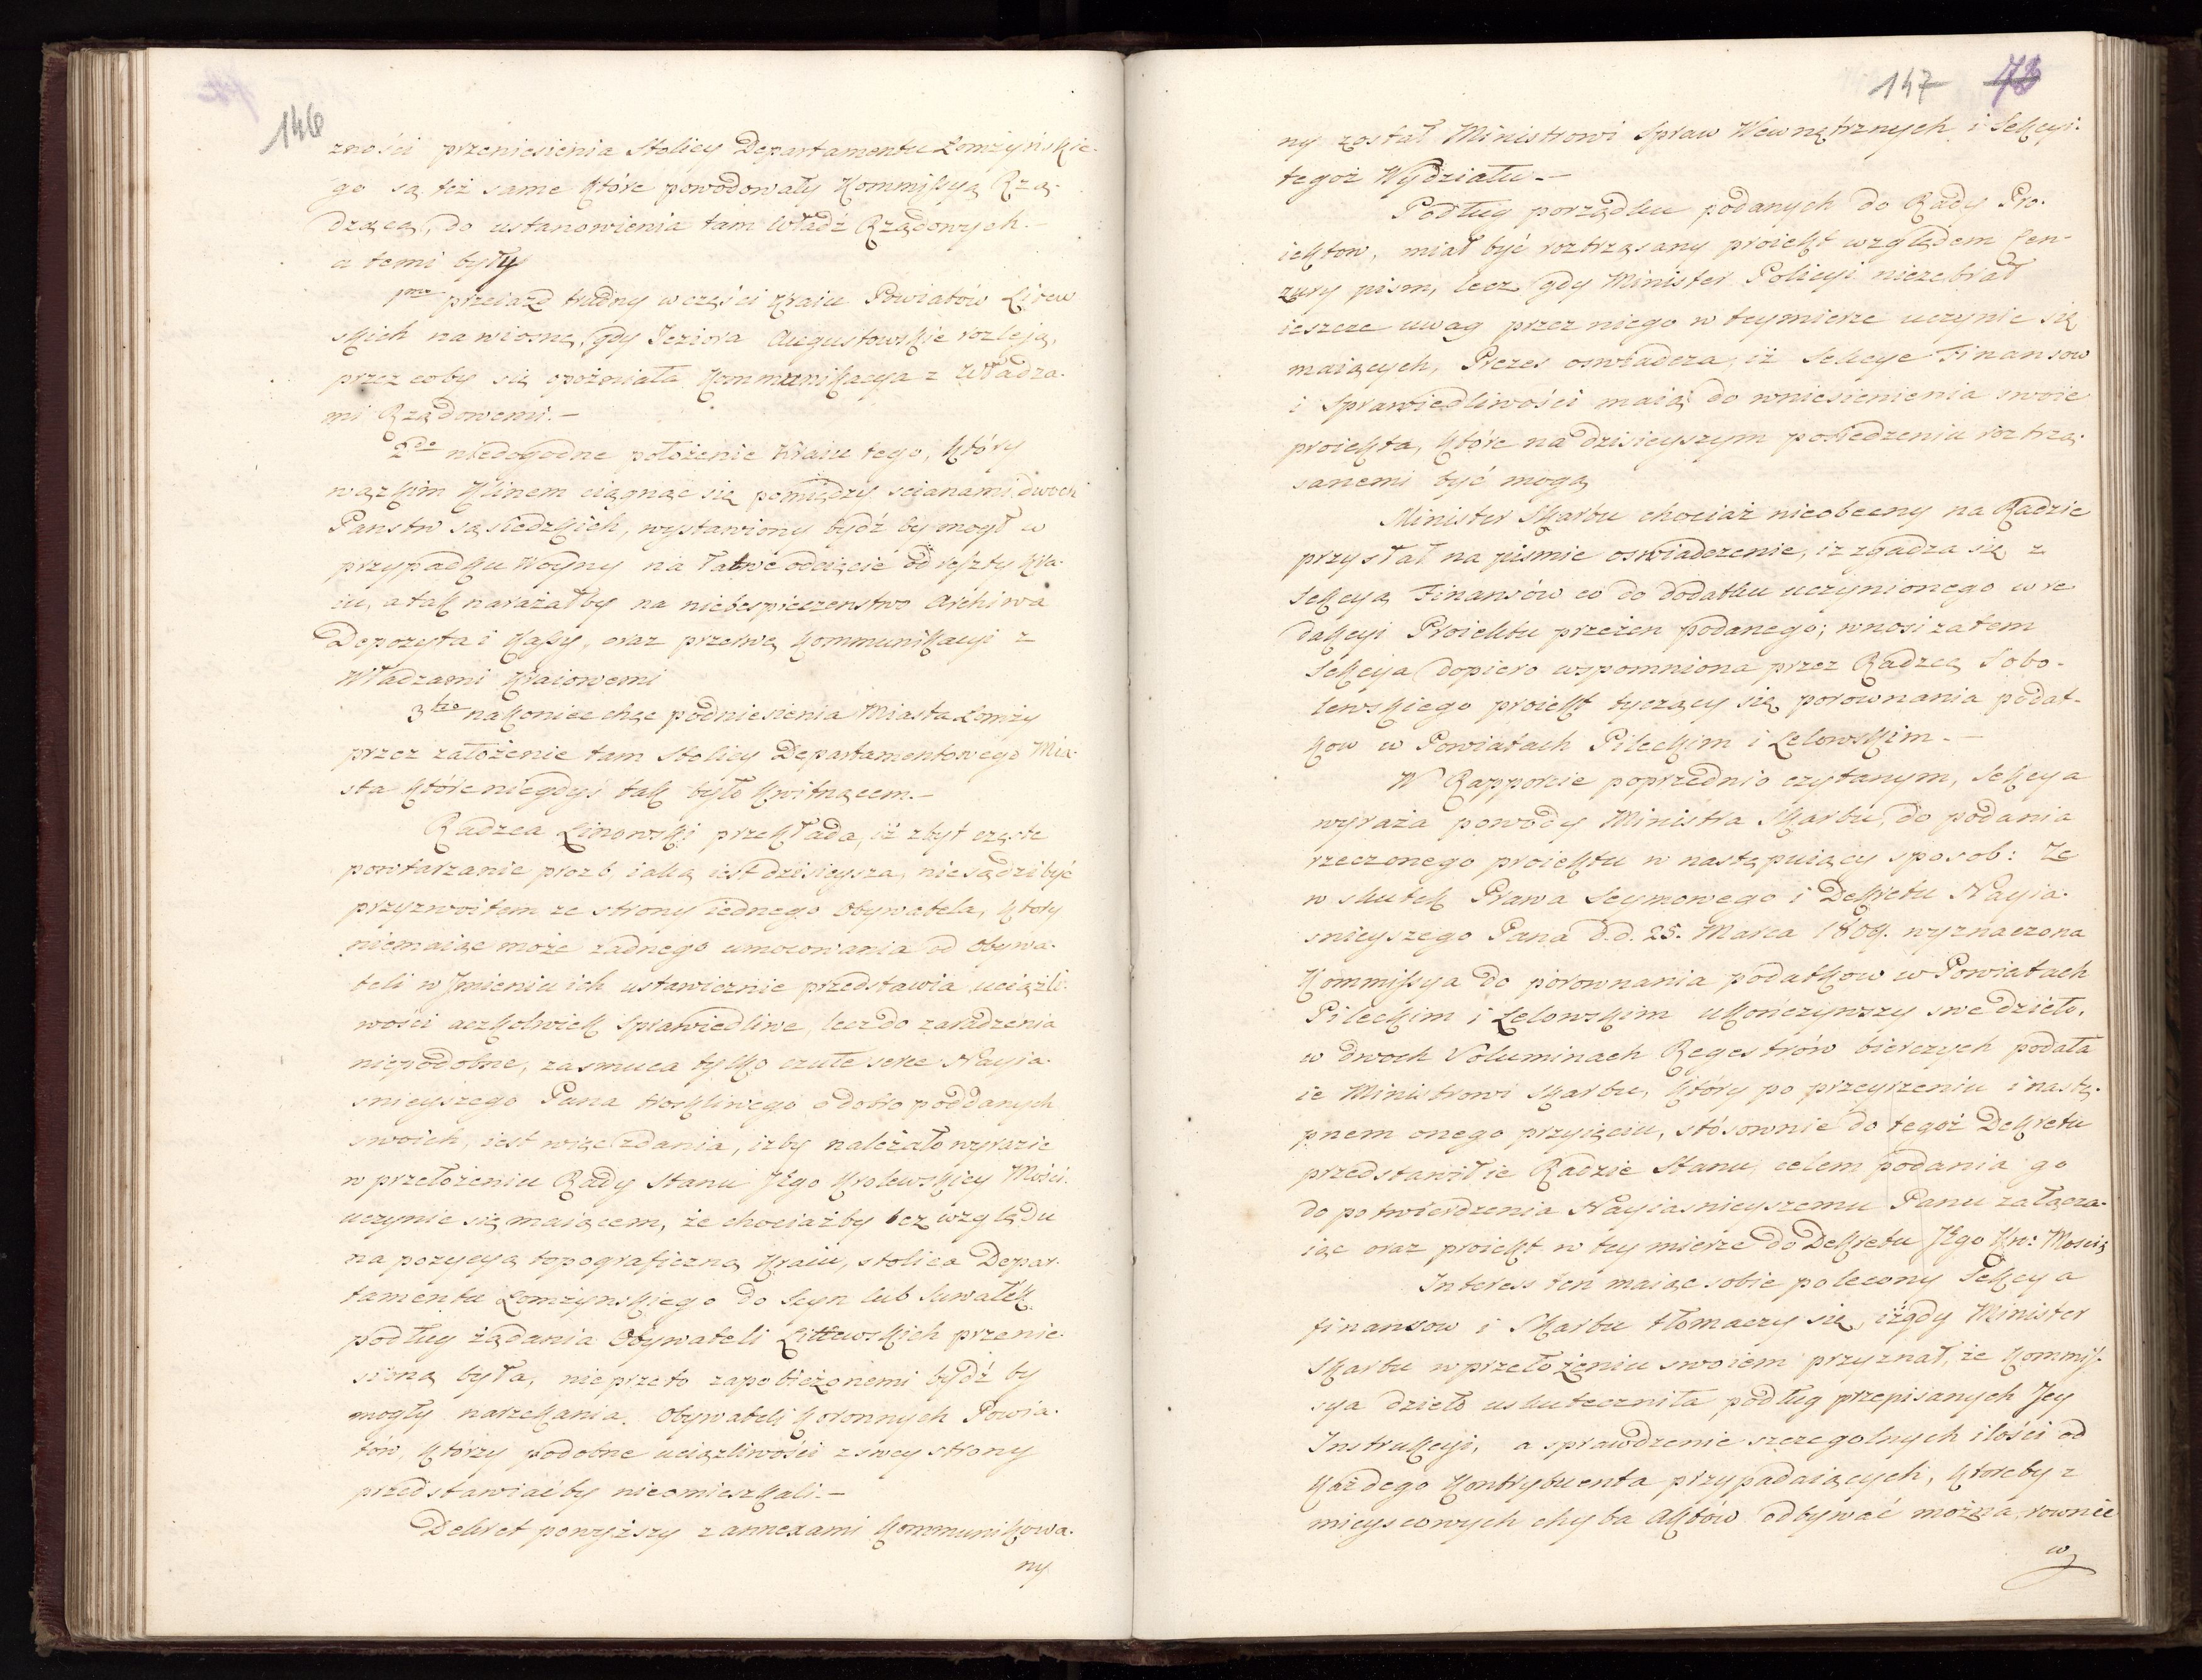 146
zności przeniesienia Stolicy Departamentu Łomżyńskie-
go są też same które powodowały Kommissyą Rzą-
dzącą, do ustanowienia tam Władz Rządowych.-
a temi były
1mo przeiazd trudny w części Kraiu Powiatów Litew
skich na wiosnę, gdy Jeziora Augustowskie rozleją,
przez coby się opóźniała Kommunikacya z Władza-
mi Rządowemi.-
2do niedogodne położenie Kraiu tego, który
wązkim Klinem ciągnąc się pomiędzy scianami dwoch
Panstw sąsiedzkich, wystawiony bydź by mogł w
przypadku Woyny na łatwe odcięcie od reszty Kra-
iu, a tak narażałby na niebespieczenstwo Archiwa
Depozyta i Kassy, oraz przerwę Kommunikacyi z
Władzami Kraiowemi
3tio nakoniec chęc podniesienia Miasta Łomży
przez założenie tam Stolicy Departamentowego Mia-
sta które niegdyś tak było kwitnącem.-
Radzca Linowski przekłada, iż zbyt częste
powtarzanie prozb, iaką iest dzisieysza, niesądzi być
przyzwoitem ze strony iednego Obywatela, ktory
niemaiąc może żadnego umocowania od Obywa-
teli w Jmieniu ich ustawicznie przedstawia uciążli-
wości aczkolwiek sprawiedliwe, lecz do zaradzenia
niepodobne, zasmuca tylko czułe serce Nayia-
snieyszego Pana troskliwego o dobro poddanych
swoich, iest więc zdania, iżby należało wyrazic
w przełożeniu Rady Stanu Jego Krolewskiey Mości
uczynic się maiącem, że chociażby bez względu
na pozycyą topograficzną Kraiu, stolica Depar-
tamentu Łomżynskiego do Seyn lub Suwałek
podług żądania Obywateli Littewskich przenie-
sioną była, nieprzeto zapobieżonemi bydź by
mogły narzekania Obywateli koronnych Powia-
tów, którzy podobne uciążliwości z swey strony
przedstawiaćby nieomieszkali.-
Dekret powyższy z annexami kommunikowa-
ny
147 73
ny został Ministrowi Spraw Wewnętrznych i Sekcyi
tegoż Wydziału.-
Podług porządku podanych do Rady Pro-
iektow, miał być roztrząsany proiekt względem Cen-
zury pism, lecz gdy Minister Policyi niezebrał
ieszcze uwag przez niego w teymierze uczynic się
maiących, Prezes oswiadcza, iż Sekcye Finansow
i Sprawiedliwości maią do wniesienienia swoie
proiekta, które na dzisieyszym posiedzeniu roztrzą-
sanemi być mogą
Minister Skarbu chociaż nieobecny na Radzie
przysłał na pismie oswiadczenie, iż zgadza się z
Sekcyą Finansów co do dodatku uczynionego w re
dakcyi Proiektu przezeń podanego; wnosi zatem
Sekcya dopiero wspomniona przez Radzcę Sobo-
lewskiego proiekt tyczący się porownania podat-
kow w Powiatach Pileckim i Lelowskim.-
W Rapporcie poprzednio czytanym, Sekcya
wyraża powody Ministra Skarbu, do podania
rzeczonego proiektu w następuiący sposob: Ze
w skutek Prawa Seymowego i Dekretu Nayia-
snieyszego Pana d.d. 25. Marca 1809. wyznaczona
Kommissya do porownania podatkow w Powiatach
Pileckim i Lelowskim ukończywszy swe dzieło,
w dwoch Voluminach Regestrów bierczych podała
ie Ministrowi Skarbu, który po przeyrzeniu i nastę-
pnem onego przyięciu, stósownie do tegoż Dekretu
przedstawił ie Radzie Stanu, celem podania go
do potwierdzenia Nayiasnieyszemu Panu załącza-
iąc oraz proiekt w teymierze do Dekretu Jego Kr: Moscią
Interess ten maiąc sobie polecony Sekcya
finansow i Skarbu tłomaczy się, iż gdy Minister
Skarbu w przełożeniu swoiem przyznał, że Kommis-
sya dzieło uskuteczniła podług przepisanych Jey
Instrukcyi, a sprawdzenie szczegolnych ilości od
każdego Kontrybuenta przypadaiących, któreby z
mieyscowych chyba Aktów odbywać można, rownie
w